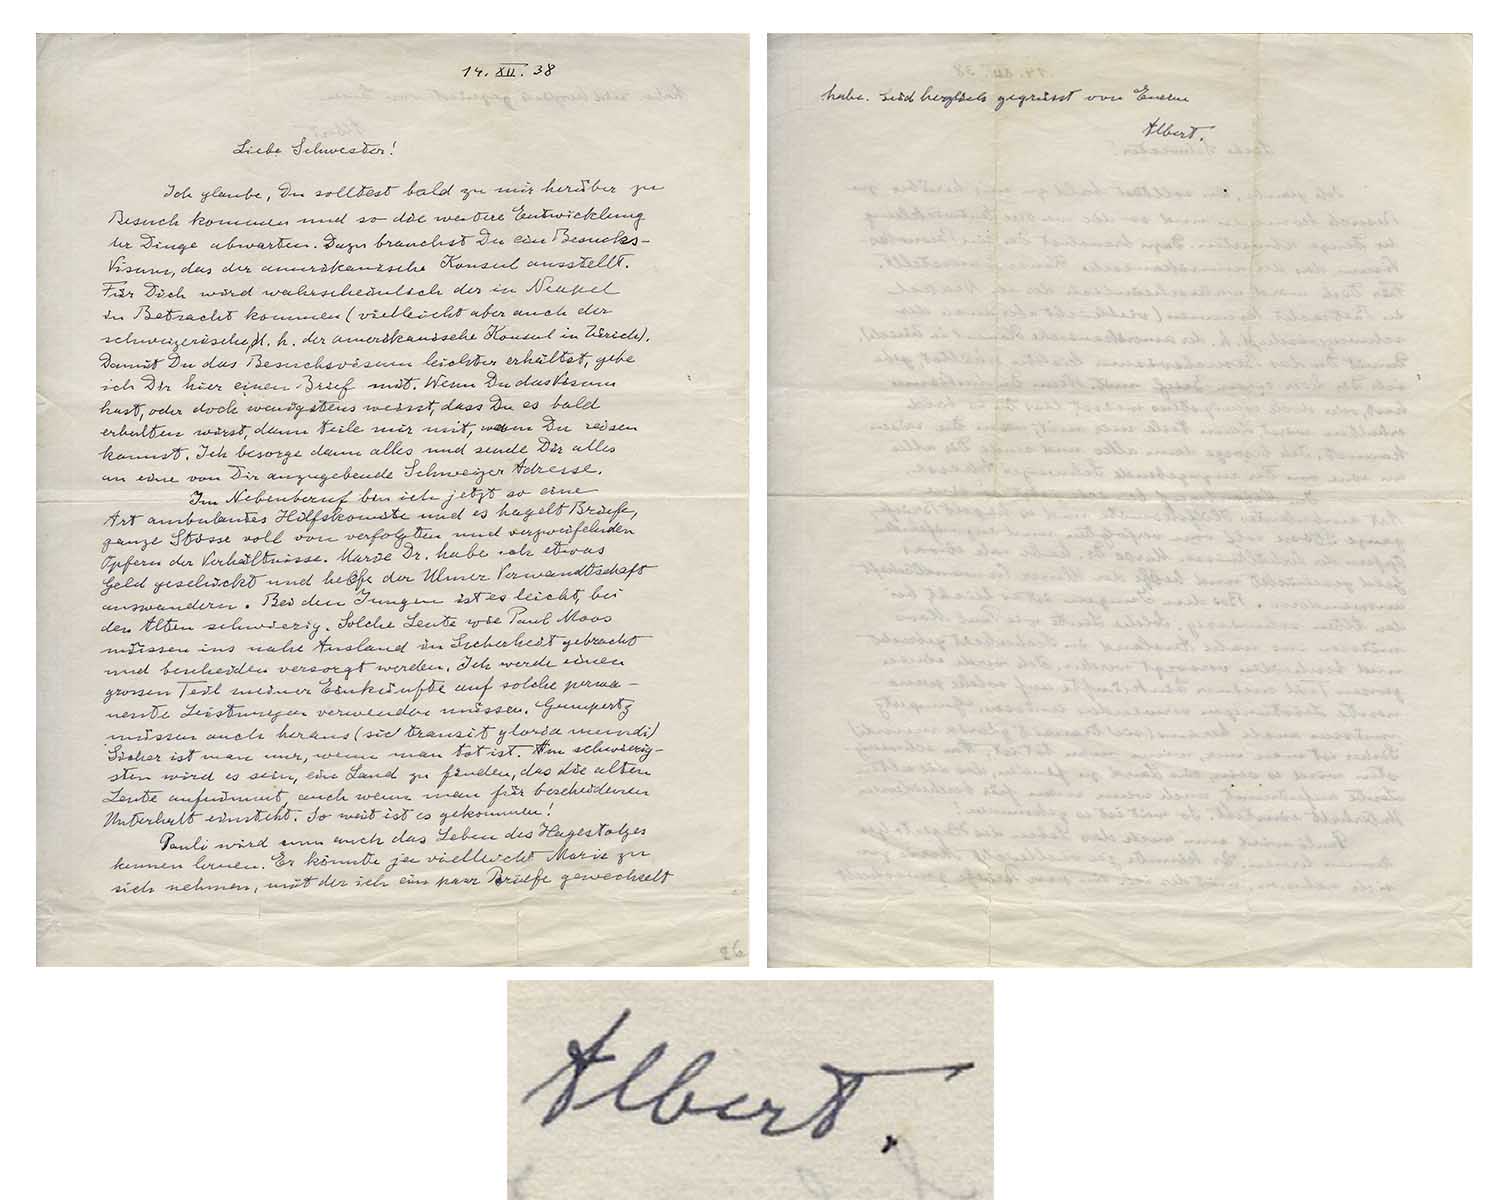 14. XII. 38
Liebe Schwester!
Ich glaube, Du solltest bald zu mir herüber zu
Besuch kommen und so die weitere Entwicklung
der Dinge abwarten. Dazu brauchst Du ein Besuchs-
Visum, das der amerikanische Konsul ausstellt.
Für Dich wird wahrscheinlich der in Neapel
in Betracht kommen (vielleicht aber auch der
schweizerische, d. h. der amerikanische Konsul in Zürich).
Damit Du das Besuchsvisum leichter erhältst, gebe
ich Dir hier einen Brief mit. Wenn Du das Visum
hast, oder doch wenigstens weisst, dass Du es bald
erhalten wirst, dann teile mir mit, wann Du reisen
kannst. Ich besorge dann alles und sende Dir alles
an eine von Dir anzugebende Schweizer Adresse.
Im Nebenberuf bin ich jetzt so eine
Art ambulantes Hilfskomite und es hagelt Briefe,
ganze Stösse voll von verfolgten und verzweifelnden
Opfern der Verhältnisse. Marie Dr. habe ich etwas
Geld geschickt und helfe der Ulmer Verwandtschaft
auswandern. Bei den Jungen ist es leicht, bei
den Alten schwierig. Solche Leute wie Paul Moos
müssen ins nahe Ausland in Sicherheit gebracht
und bescheiden versorgt werden. Ich werde einen
grossen Teil meiner Einkünfte auf solche perma-
nente Leistungen verwenden müssen. Gumpertz
müssen auch heraus (sic transit gloria mundi)
Sicher ist man nur, wenn man tot ist. Am schwierig-
sten wird es sein, ein Land zu finden, das die alten
Leute aufnimmt, auch wenn man für bescheidenen
Unterhalt einsteht. So weit ist es gekommen!
Pauli wird nun auch das Leben des Hagestolzes
kennen lernen. Er könnte ja vielleicht Marie zu
sich nehmen, mit der ich ein paar Briefe gewechselt
26
habe. Seid herzlich gegrüsst von Eurem
Albert.
Albert.